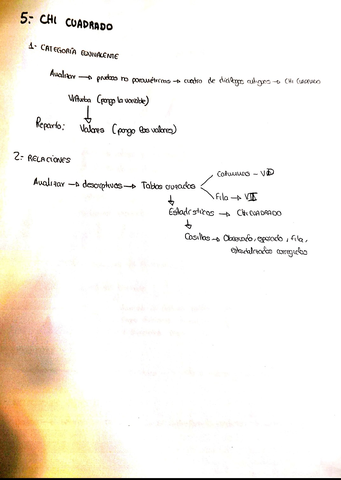 5.- CHI CUADRADO
1- CATEGORÍA EQUIVALENTE
Analizar → pruebas no paramétricas → cuadro de diálogos antiguos → CHI CUADRADO
(pongo la variable)
Reparto: Valores (pongo los valores)
2- RELACIONES
Analizar → descriptivos → Tablas cruzadas
Columnas - VD
Fila → VI
Estadísticos → CHI CUADRADO
Casillas → Observado, esperado, fila,
estandarizados corregidos